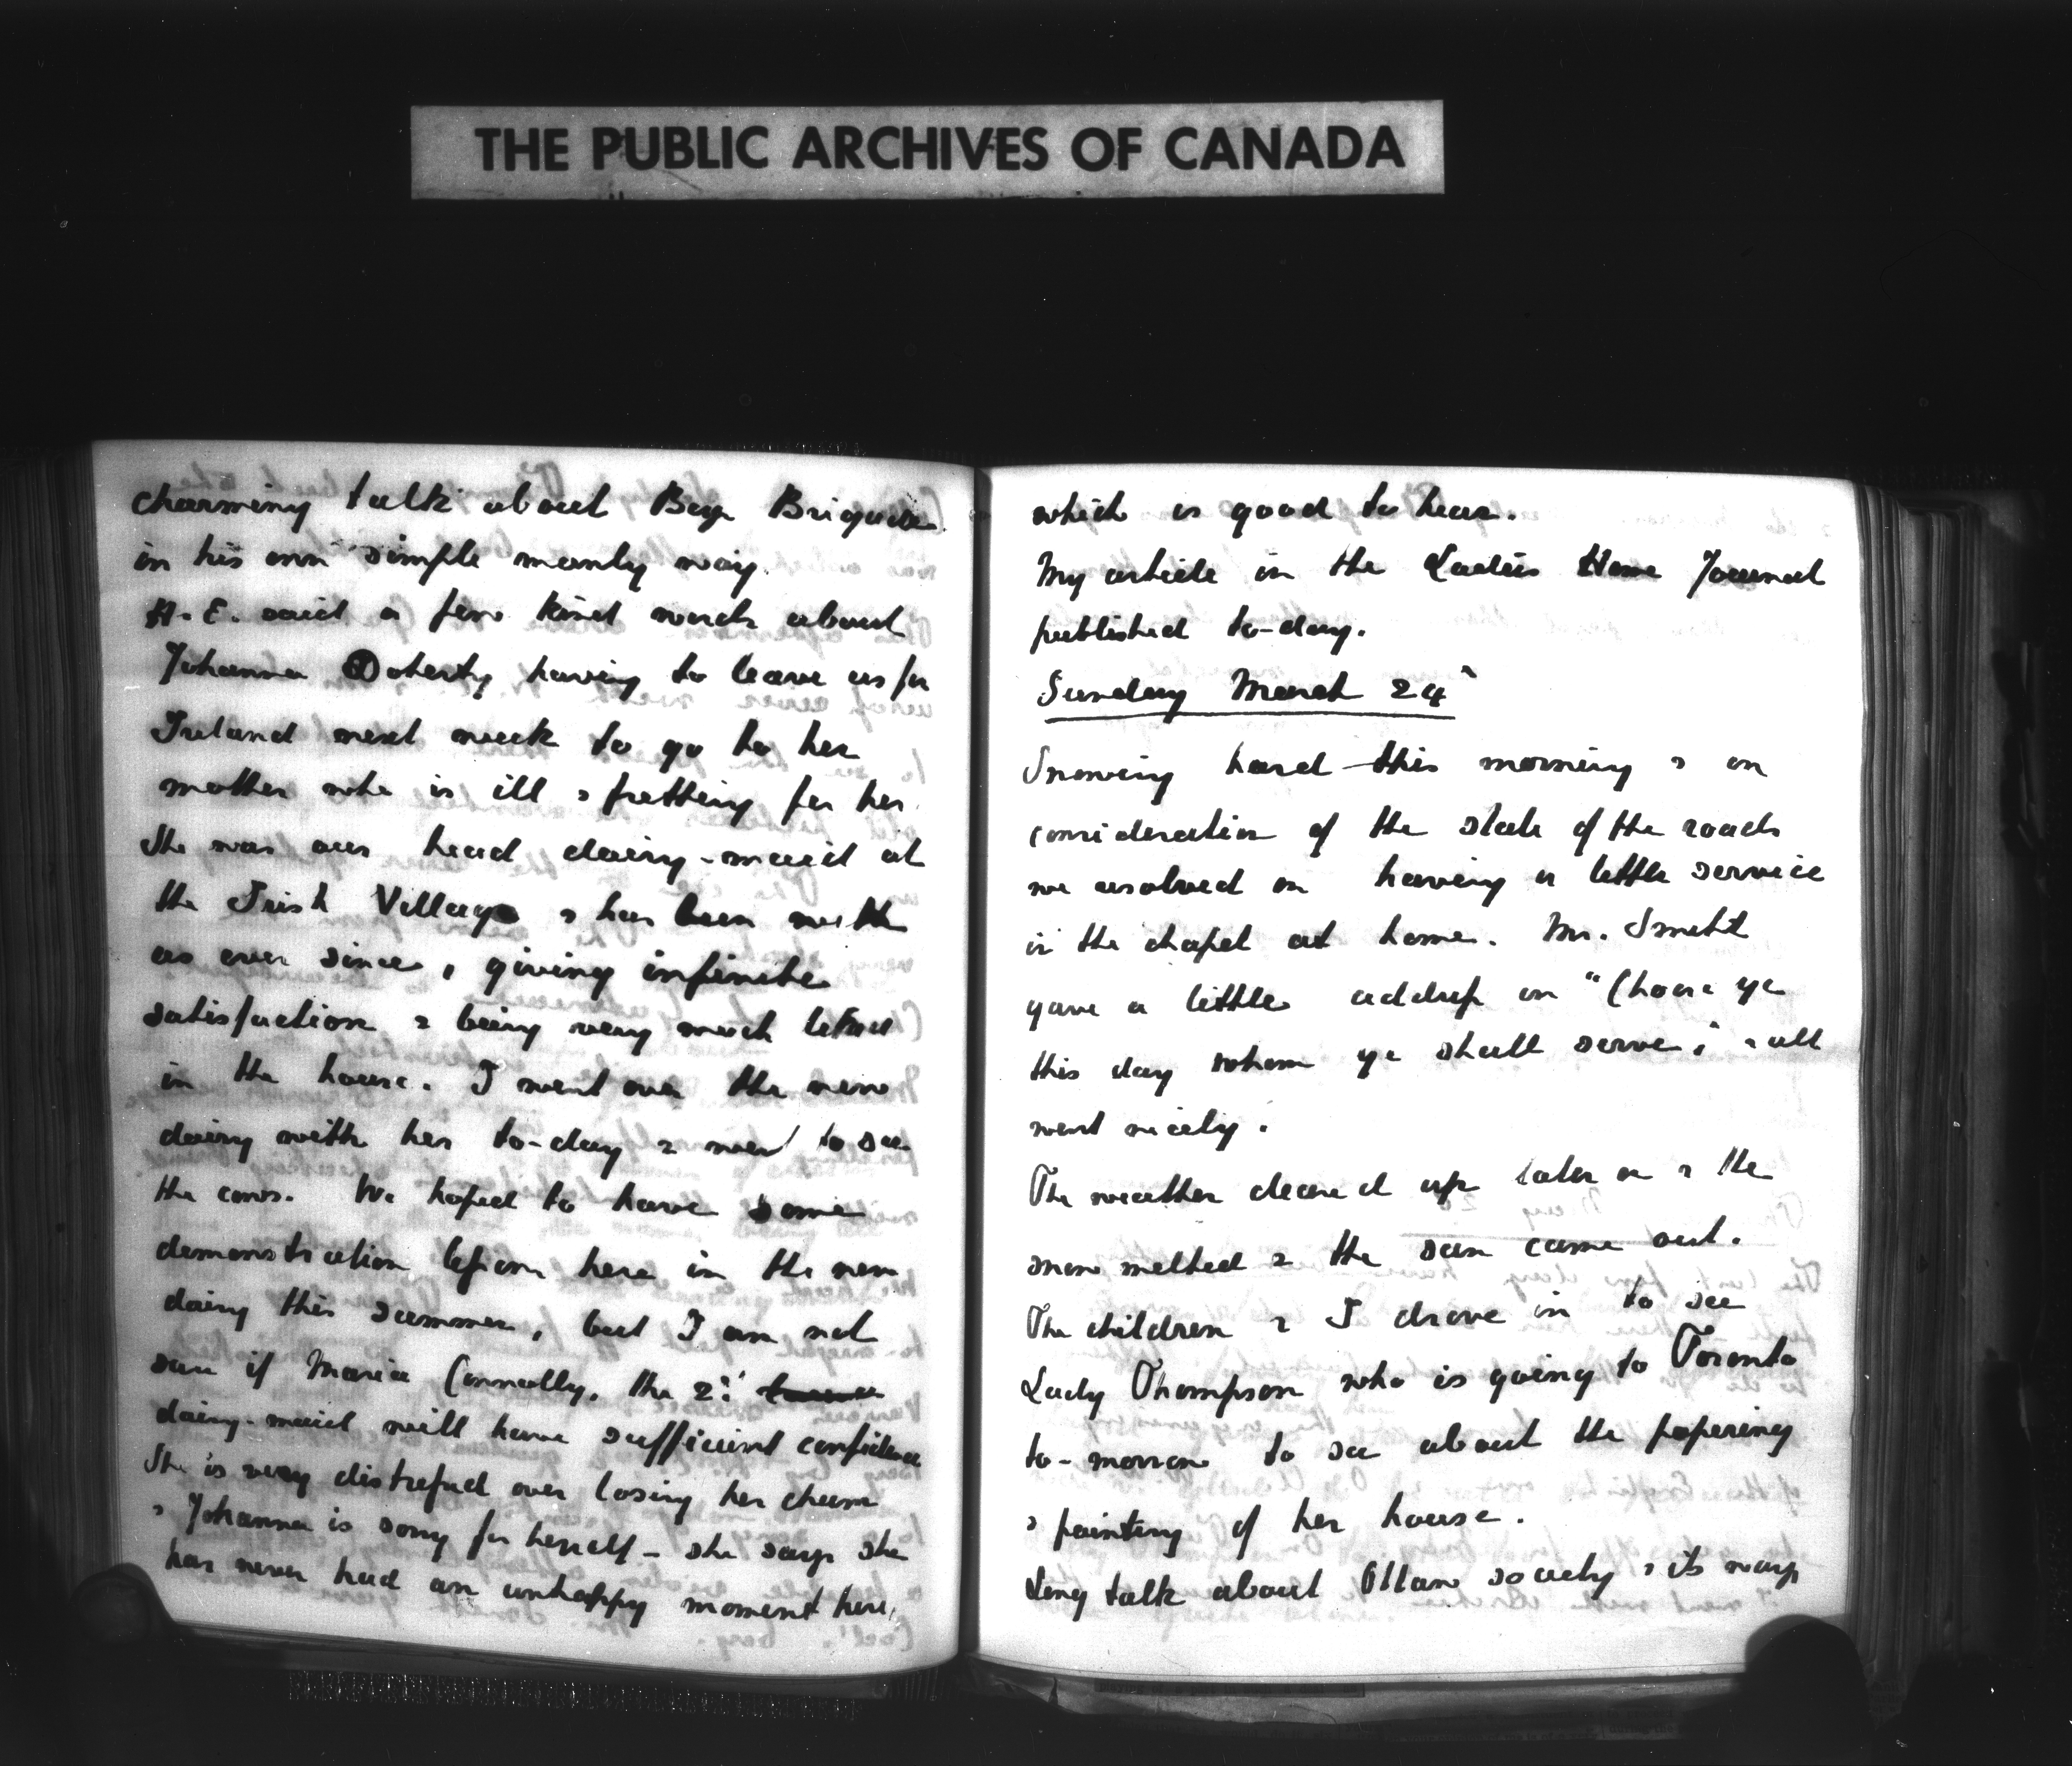 THE PUBLIC ARCHIVES OF CANADA
charming talk about Boys Brigades
in his own simple manly way.
H.E. said a few kind words about
Johanna Doherty having to leave us for
Ireland next week to go to her
mother who is ill & fretting for her.
She was our head dairy-maid at
the Irish Village & has been with
us ever since, giving infinite
satisfaction & being very much liked
in the house. I went over the new
dairy with her to-day & went to see
the cows. We hoped to have some
demonstration lessons here in the new
dairy this summer, but I am not
sure if Maria Connolly, the 2nd
dairy-maid will have sufficient confidence
She is very distressed over losing her chum
& Johanna is sorry for herself - she says she
has never had an unhappy moment here,
which is good to hear.
My article in the Ladies Home Journal
published to-day.
Sunday March 24th
Snowing hard this morning & on
consideration of the state of the roads
we resolved on having a little service
in the chapel at home. Mr. Smith
gave a little address on "Choose ye
this day whom ye shall serve", & all
went nicely.
The weather cleared up later on & the
snow melted & the sun came out.
The children & I drove in to see
Lady Thompson who is going to Toronto
to-morrow to see about the papering
& painting of her house.
Long talk about Ottawa society & its ways